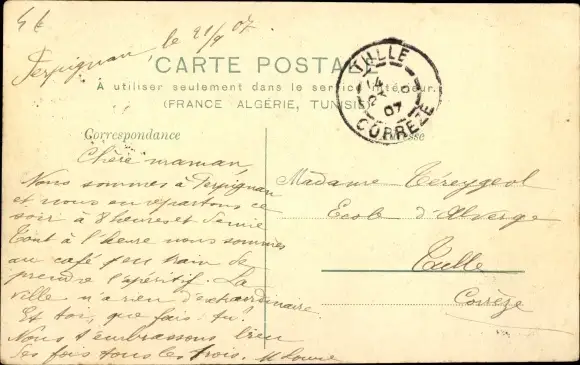 4 €
Perpignan, le 21/9 07.
CARTE POSTA
À utiliser seulement dans le service intérieur.
(FRANCE ALGÉRIE, TUNISIE)
TULLE
07
CORREZE
Correspondance
Chère maman,
Nous sommes à Perpignan
et nous en repartons ce
soir à 8 heures et demie
Tout à l'heure nous sommes
au café en train de
prendre l'apéritif. La
ville n'a rien d'extraordinaire.
Et toi, que fais-tu?
Nous t'embrassons bien
des fois tous les trois.
Madame Téreygeol
Ecole d'Alverge
Tulle
Corrèze